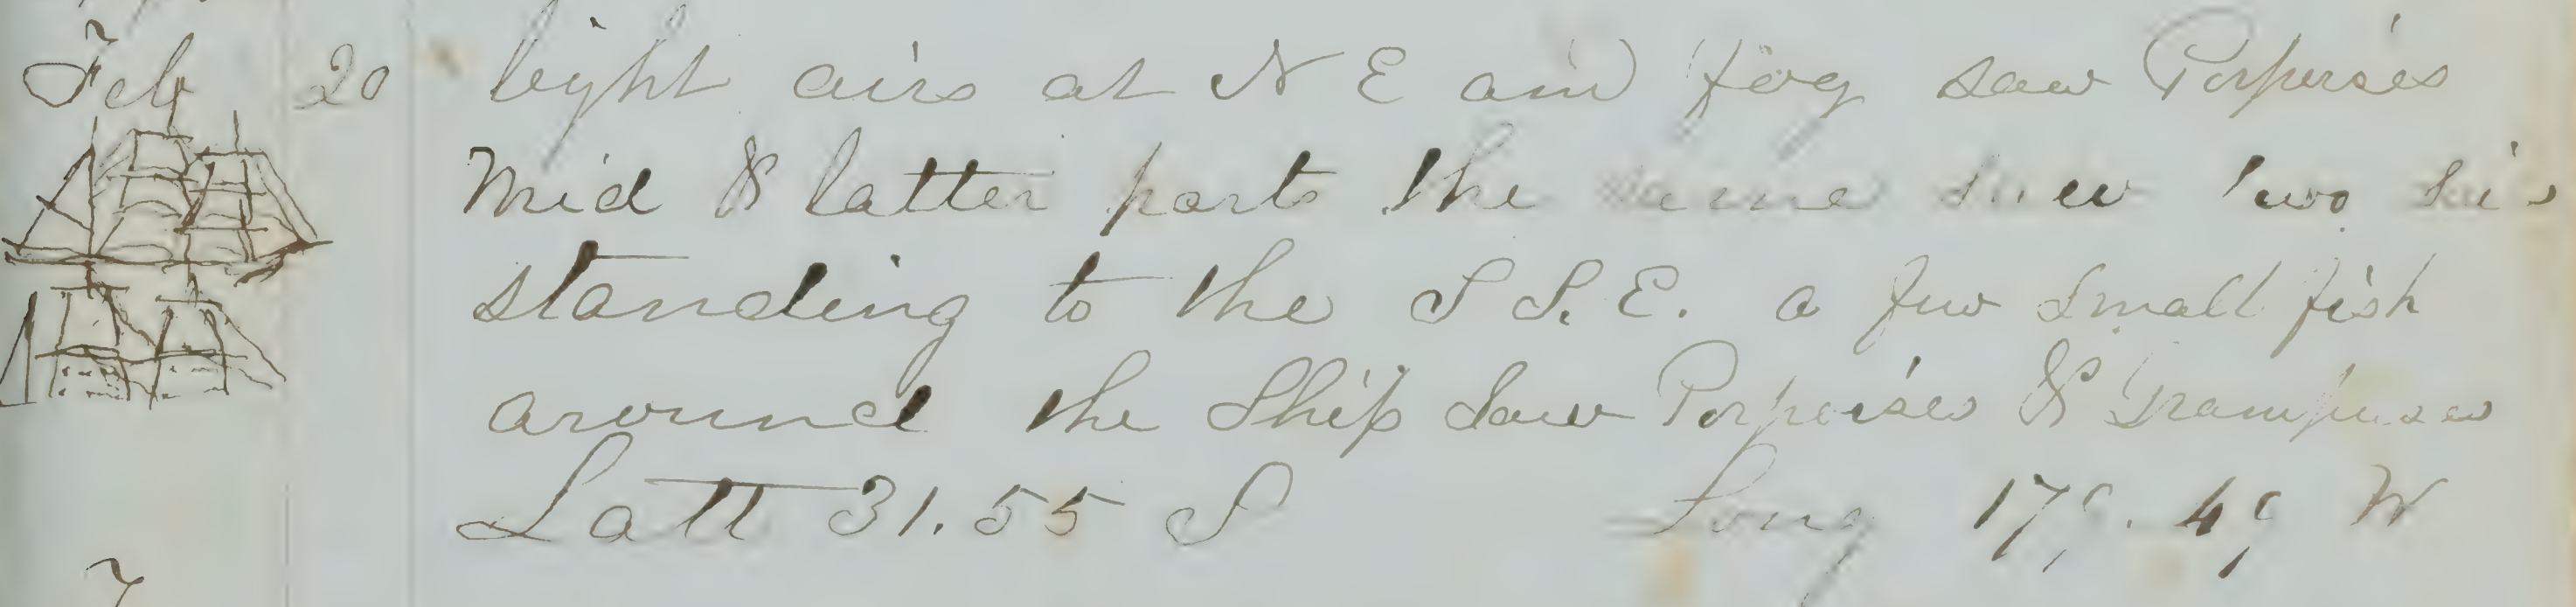 Feb 20 light airs at N E and fog saw Porpoises
Mid & latter parts the same saw two
standing to the S S.E. a few small fish
around the Ship Saw Porpoises & Grampuses
Latt 31.55 S Long 179.49 W